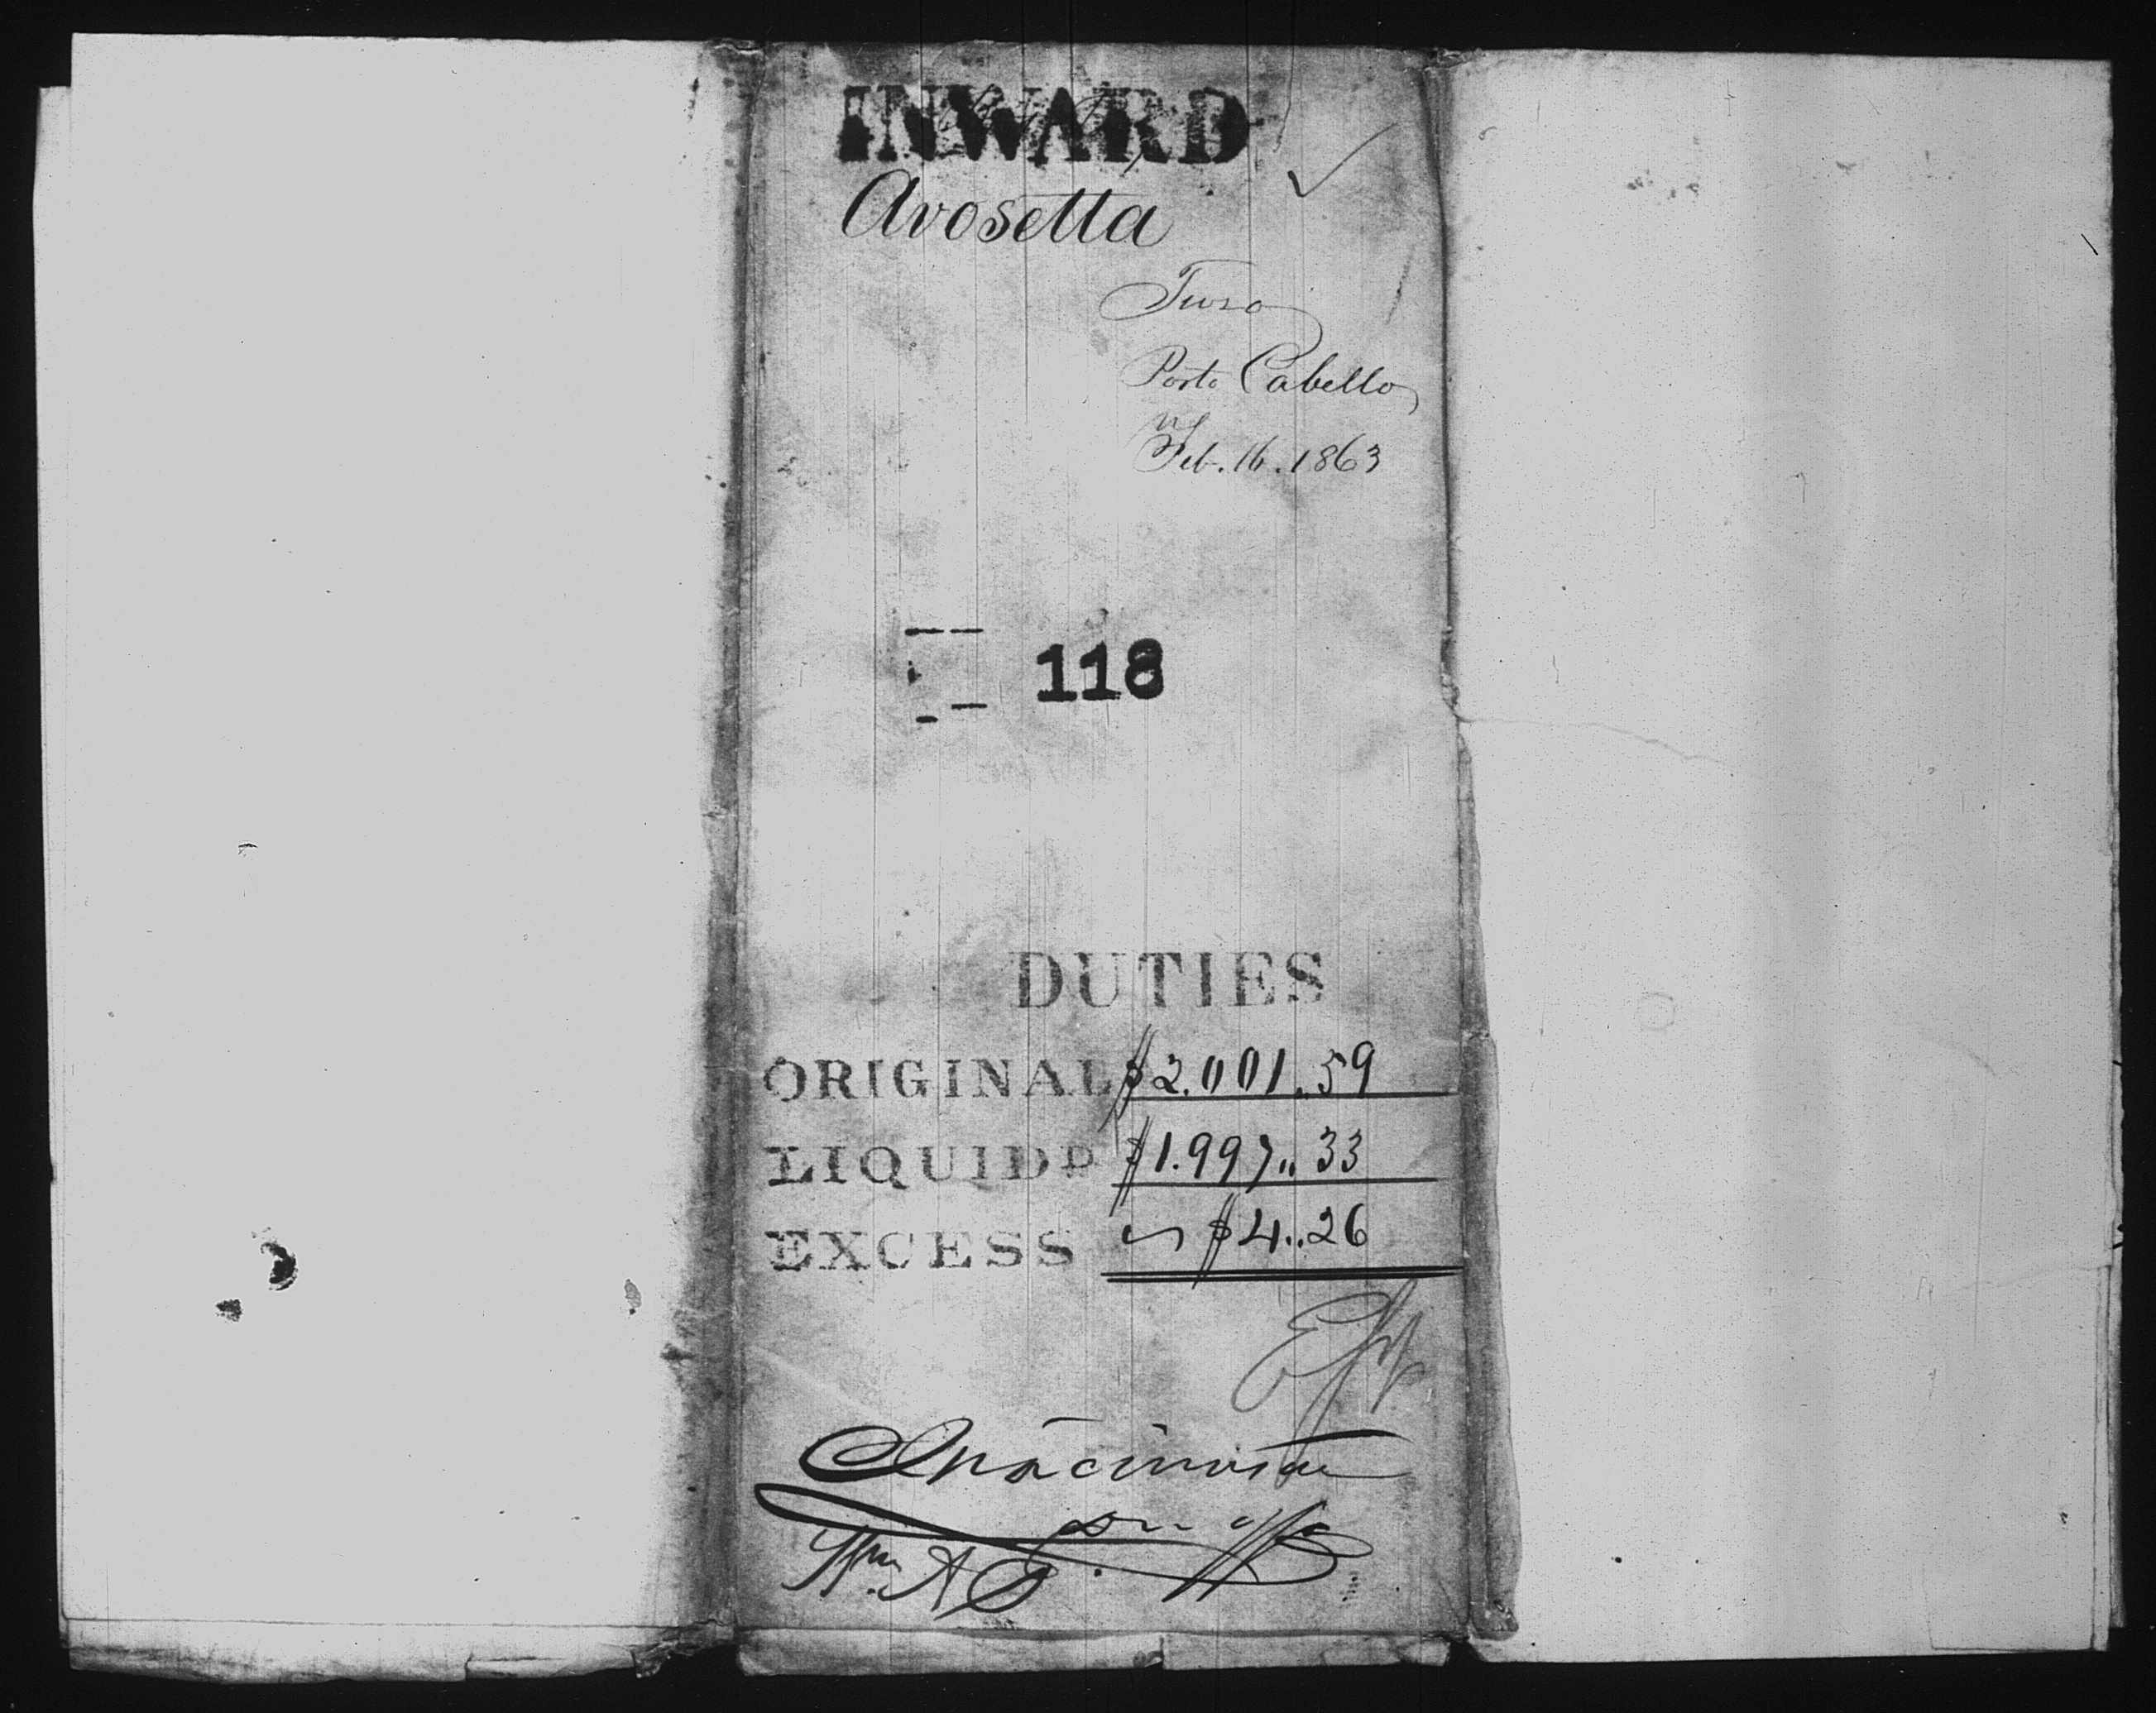 INWARD
Avosetta
Porto Cabello
Feb. 16. 1863
118
DUTIES
ORIGINAL $2.001..59
LIQUIDD $1.997..33
EXCESS $4..26
Wm A